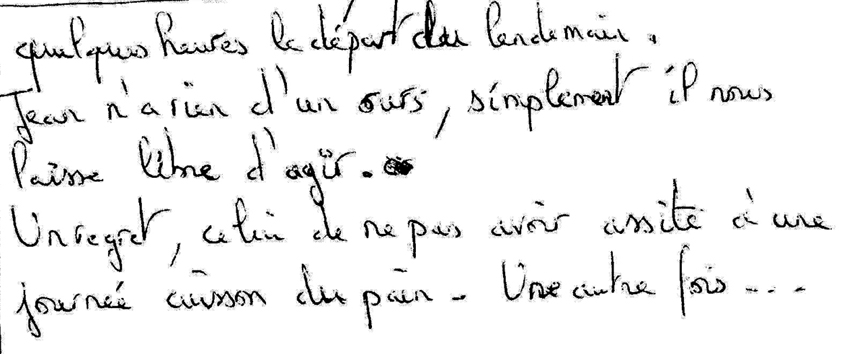 quelques heures le départ du lendemain.
Jean n'a rien d'un ours, simplement il nous
laisse libre d'agir.
Un regret, celui de ne pas avoir assité à une
journée cuisson du pain - Une autre fois ...